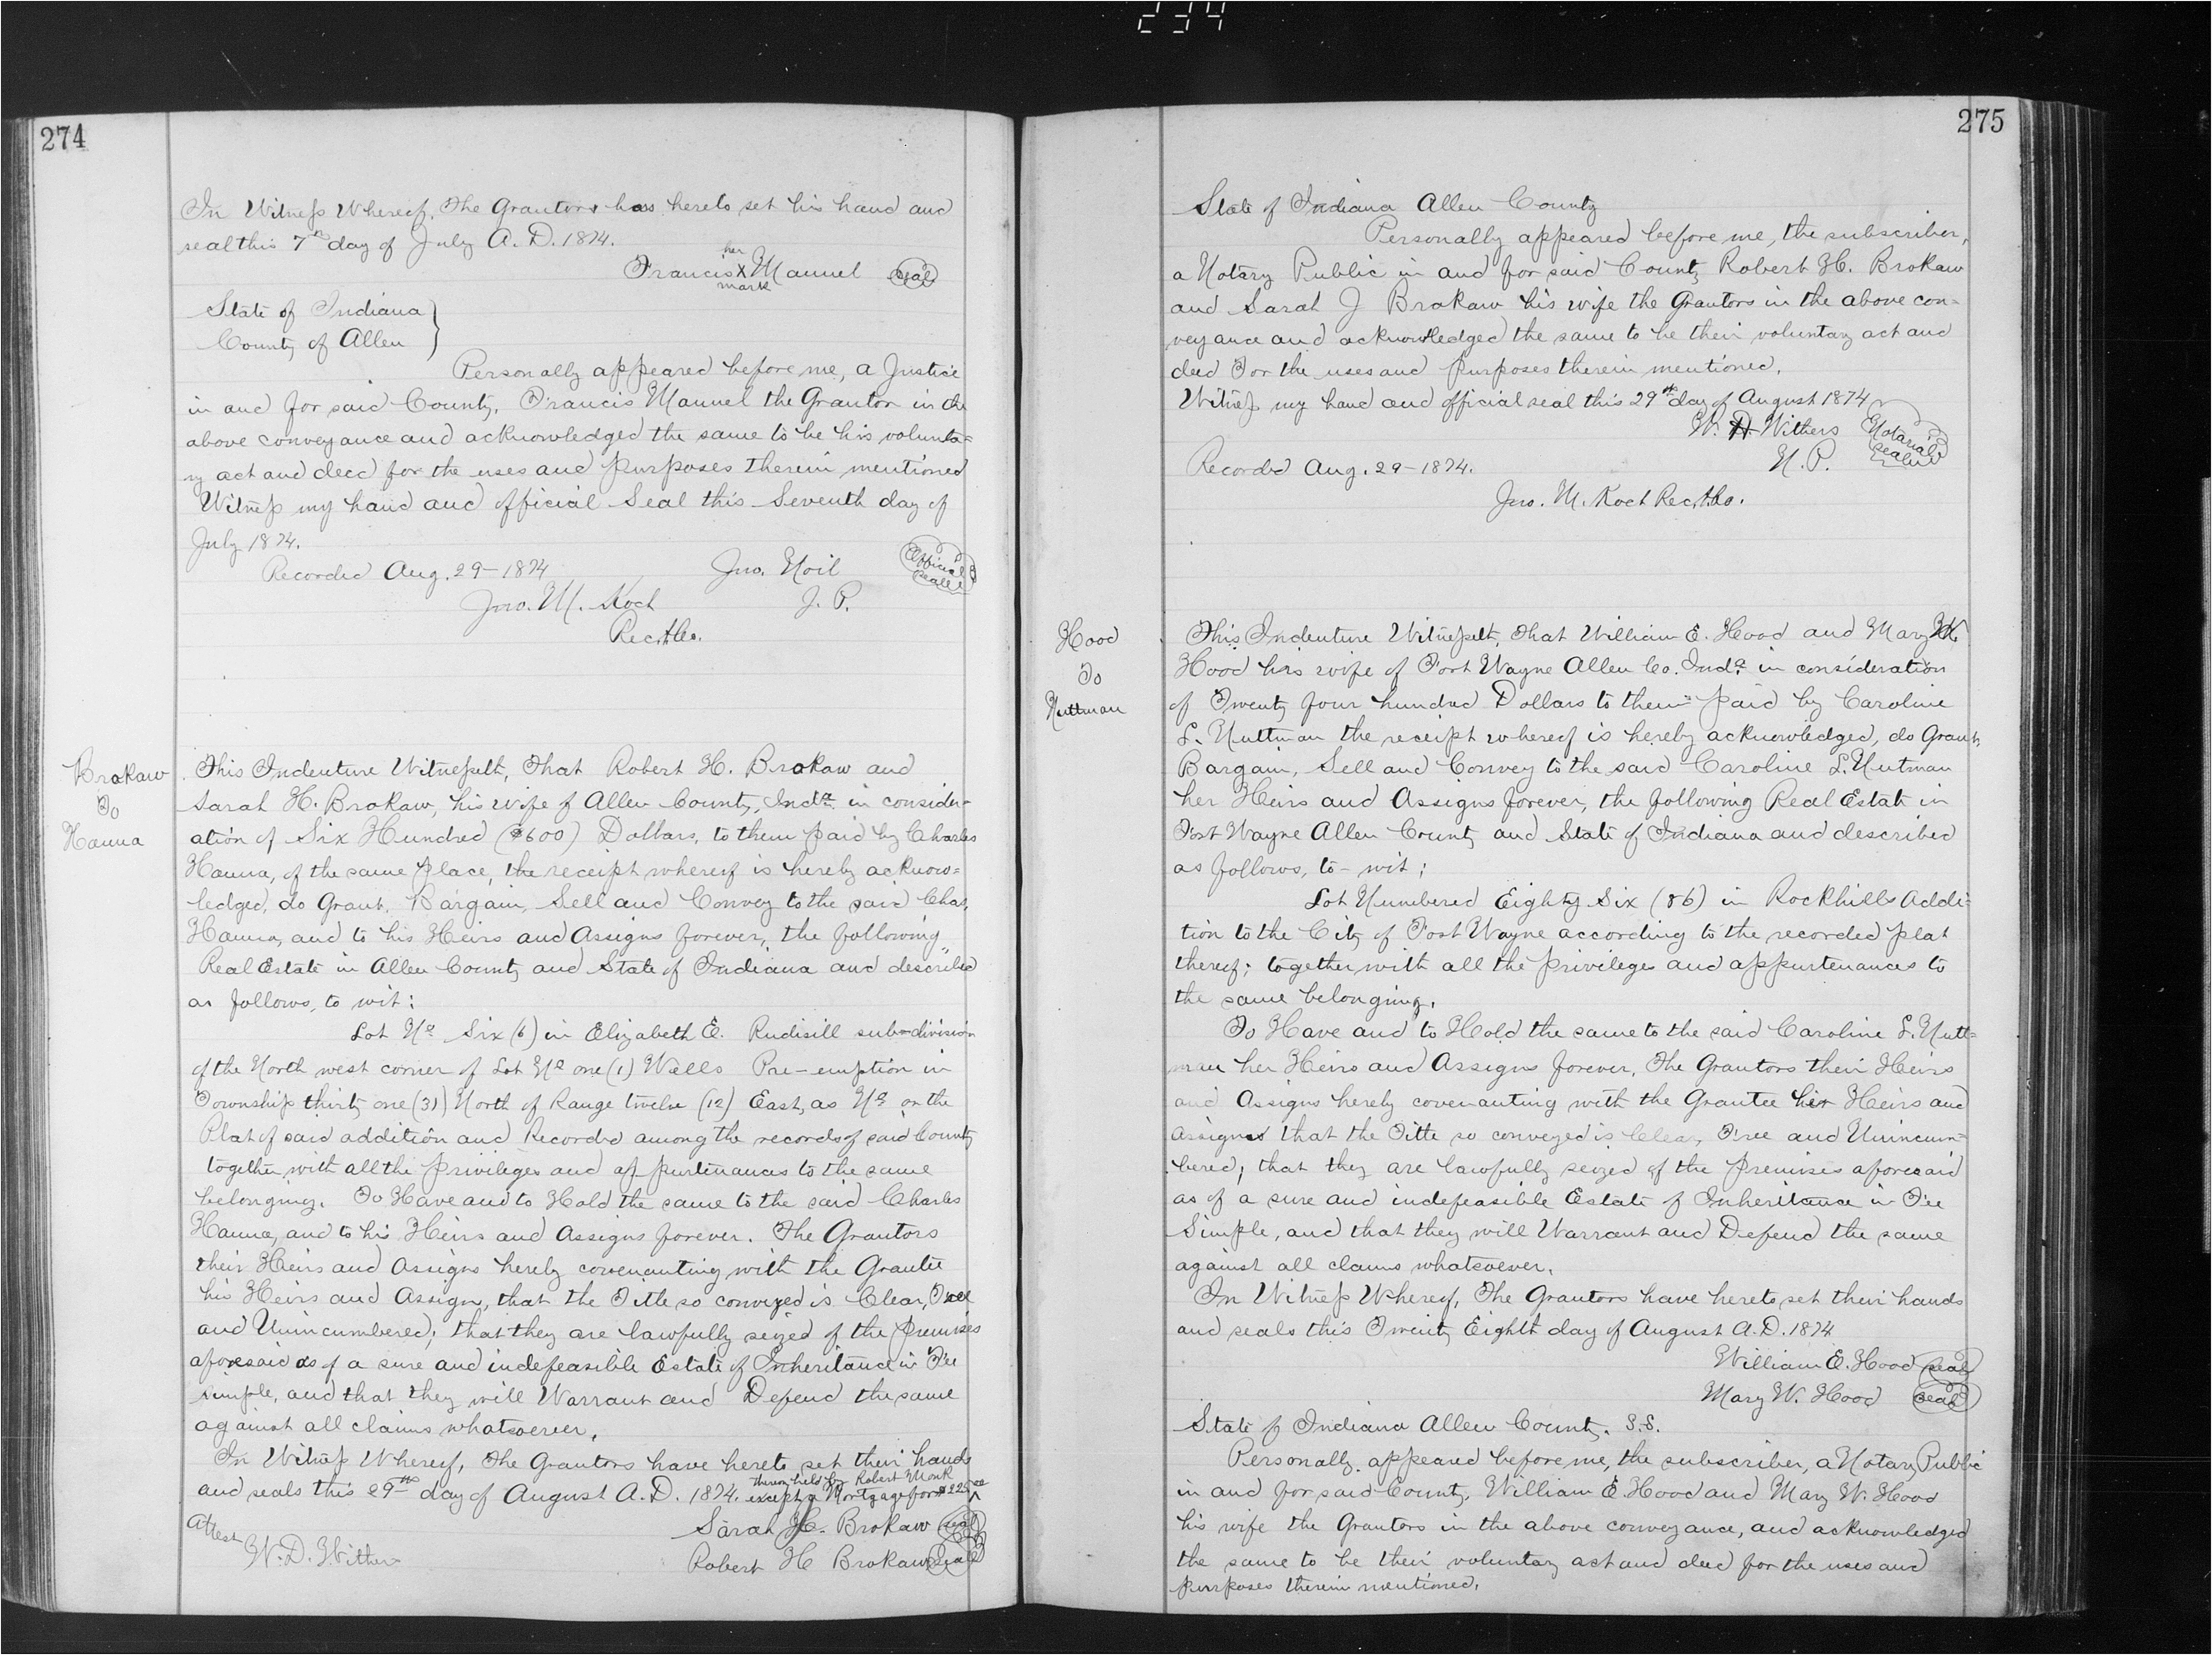 234
274
In Witness Whereof, The Grantors has hereto set his hand and
seal this 7th day of July A. D. 1874.
her
Francis X Mannel seal
mark
State of Indiana }
County of Allen }
Personally appeared before me, a Justice
in and for said County, Francis Mannel the Grantor in the
above conveyance and acknowledged the same to be his volunta=
ry act and deed for the uses and purposes therein mentioned
Witness my hand and official Seal this Seventh day of
July 1874.
Recorded Aug. 29-1874 Jno. Noil Official Seal
Jno. M. Koch J. P.
Rec.A.Co.
Brokaw
To
Hanna
This Indenture Witnesseth, That Robert H. Brokaw and
Sarah H. Brokaw, his wife of Allen County, Inda. in consider-
ation of Six Hundred ($600) Dollars, to them paid by Charles
Hanna, of the same place, the receipt whereof is hereby acknow=
ledged, do Grant, Bargain, Sell and Convey to the said Chas.
Hanna, and to his Heirs and Assigns forever, the following
Real Estate in Allen County and State of Indiana and described
as follows, to wit:
Lot No Six (6) in Elizabeth E. Rudisill sub=division
of the North west corner of Lot No one (1) Wells Pre-emption in
Township thirty one (31) North of Range twelve (12) East, as No on the
Plat of said addition and Recorded among the records of said County
together with all the privileges and appurtenances to the same
belonging. To Have and to Hold the same to the said Charles
Hanna, and to his Heirs and Assigns forever. The Grantors
their Heirs and Assigns hereby covenanting with the Grantee
his Heirs and Assign, that the Title so conveyed is Clear, Free
and Unincumbered; that they are lawfully seized of the premises
aforesaid as of a sure and indefeasible Estate of Inheritance in Fee
simple, and that they will Warrant and Defend the same
against all claims whatsoever.
In Witness Whereof, The Grantors have hereto set their hands
thereon held by Robert Monk
and seals this 29th day of August A.D. 1874. except a Mortgage for $225.00
Attest Sarah H. Brokaw seal
W. D. Withers Robert H Brokaw Seal
275
State of Indiana Allen County
Personally appeared before me, the subscriber,
a Notary Public in and for said County Robert H. Brokaw
and Sarah J Brokaw his wife the Grantors in the above con=
veyance and acknowledged the same to be their voluntary act and
deed For the uses and purposes therein mentioned.
Witness my hand and official seal this 29th day of August 1874
W. D. Withers Notarial seal
Recorded Aug. 29-1874. N. P.
Jno. M. Koch Rec.A.Co.
Hood
To
Nuttman
This Indenture Witnesseth, That William E. Hood and Mary W.
Hood his wife of Fort Wayne Allen Co. Inda. in consideration
of Twenty four hundred Dollars to them paid by Caroline
L. Nuttman the receipt whereof is hereby acknowledged, do Grant,
Bargain, Sell and Convey to the said Caroline L. Nutman
her Heirs and Assigns forever, the following Real Estate in
Fort Wayne Allen County and State of Indiana and described
as follows, to-wit;
Lot Numbered Eighty Six (86) in Rockhills Addi=
tion to the City of Fort Wayne according to the recorded plat
thereof; together with all the privileges and appurtenances to
the same belonging.
To Have and to Hold the same to the said Caroline L. Nutt=
man her Heirs and Assigns forever, The Grantors their Heirs
and Assigns hereby covenanting with the Grantee her Heirs and
assigns that the Title so conveyed is Clear, Free and Unincum=
bered; that they are lawfully seized of the premises aforesaid
as of a sure and indefeasible Estate of Inheritance in Fee
Simple, and that they will Warrant and Defend the same
against all claims whatsoever.
In Witness Whereof, The Grantors have hereto set their hands
and seals this Twenty Eighth day of August A.D. 1874
William E. Hood seal
Mary W. Hood seal
State of Indiana Allen County. S.S.
Personally appeared before me, the subscriber, a Notary Public
in and for said County, William E. Hood and Mary W. Hood
his wife the Grantors in the above conveyance, and acknowledged
the same to be their voluntary act and deed for the uses and
purposes therein mentioned.